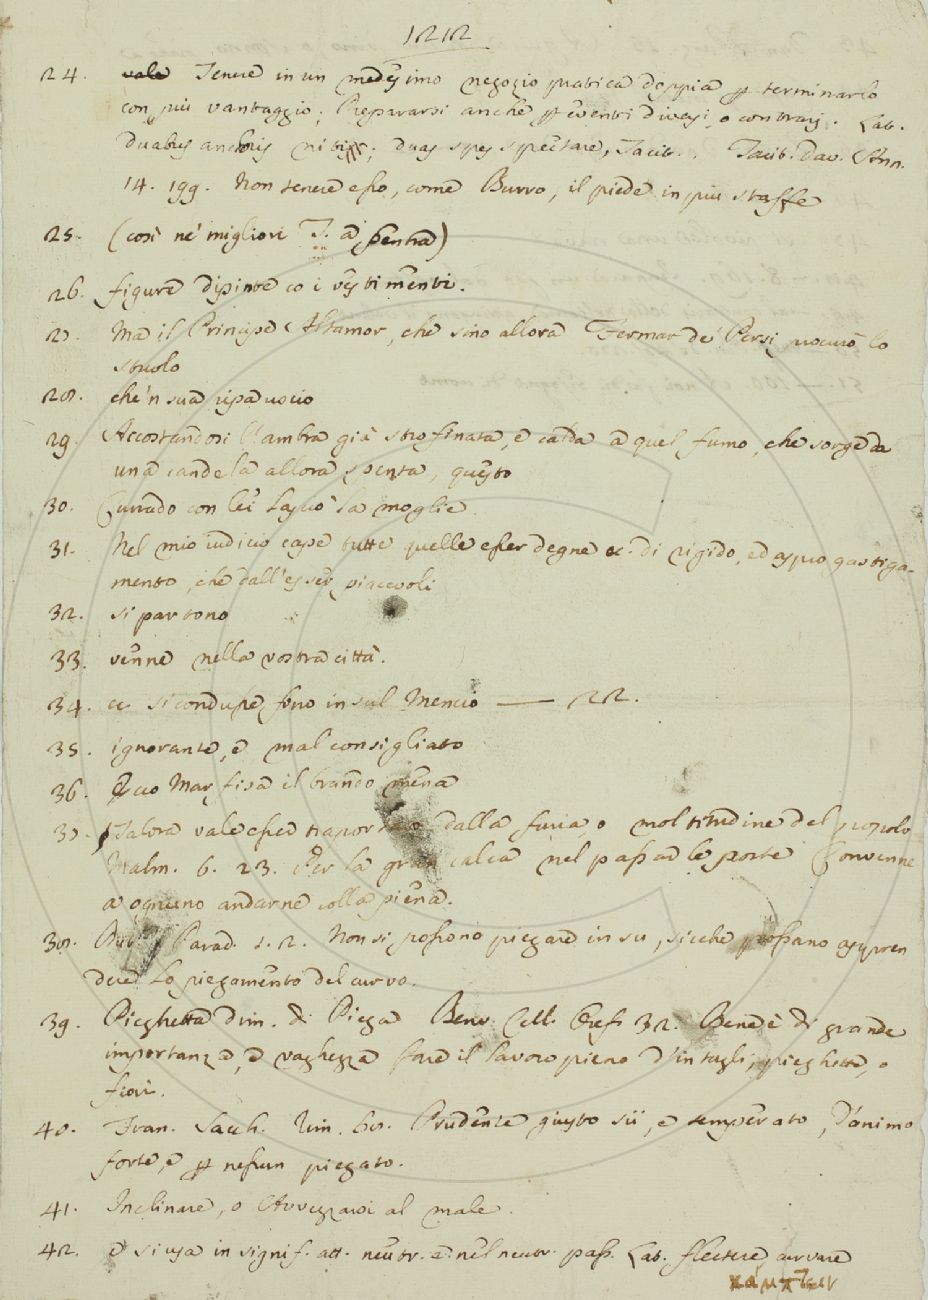 1212
24. vale Tenere in un medesimo negozio pratica doppia p terminarlo
con più vantaggio; Prepararsi anche p eventi diversi, o contrarj. Lat.
duabus anchoris niti; duas spes spectare, Tacit. Tacit. Dav. Ann.
14. 199. Non tenere esso, come Burro, il piede in più staffe
25. (così ne' migliori T. a penna)
26. figure dipinte co i vestimenti.
27. Ma il Principe Altamor, che sino allora Fermar de' Persi procurò lo
stuolo
28. che'n sua
29. Accostandosi l'ambra già strofinata, e calda a quel fumo, che sorge da
una candela allora spenta, questo
30. Currado con lei lasciò la moglie
31. Nel mio iudicio cape tutte quelle esser degne &c. di rigido, ed aspro gastiga-
mento, che dall'esser piacevoli
32. si partono
33. venne nella vostra città.
34. &c. si condusse fino in sul Mencio — 22.
35. ignorante, e mal consigliato
36. Ecco Marfisa il brando mena
37. Talora vale esser trasportato dalla furia, o moltitudine del popolo
Malm. 6. 23. Per la gran calca nel passar le porte Convenne
a ognuno andarne colla piena.
38. But. Parad. 1. 2. Non si possono piegare in su, sicché possano appren
dere lo piegamento del curvo.
39. Pieghetta dim. di Piega Benv. Cell. Oref. 32. Bene è di grande
importanza, e vaghezza fare il lavoro pieno d'intagli, pieghette, o
fiori.
40. Fran. Sacch. Rim. 68. Prudente giusto sii, e temperato, D'animo
forte, e p nessun piegato.
41. Inclinare, o Avvezzarsi al male.
42. e si usa in signif. att. neutr. e nel neutr. pass. Lat. flectere, curvare
κάμπτειν